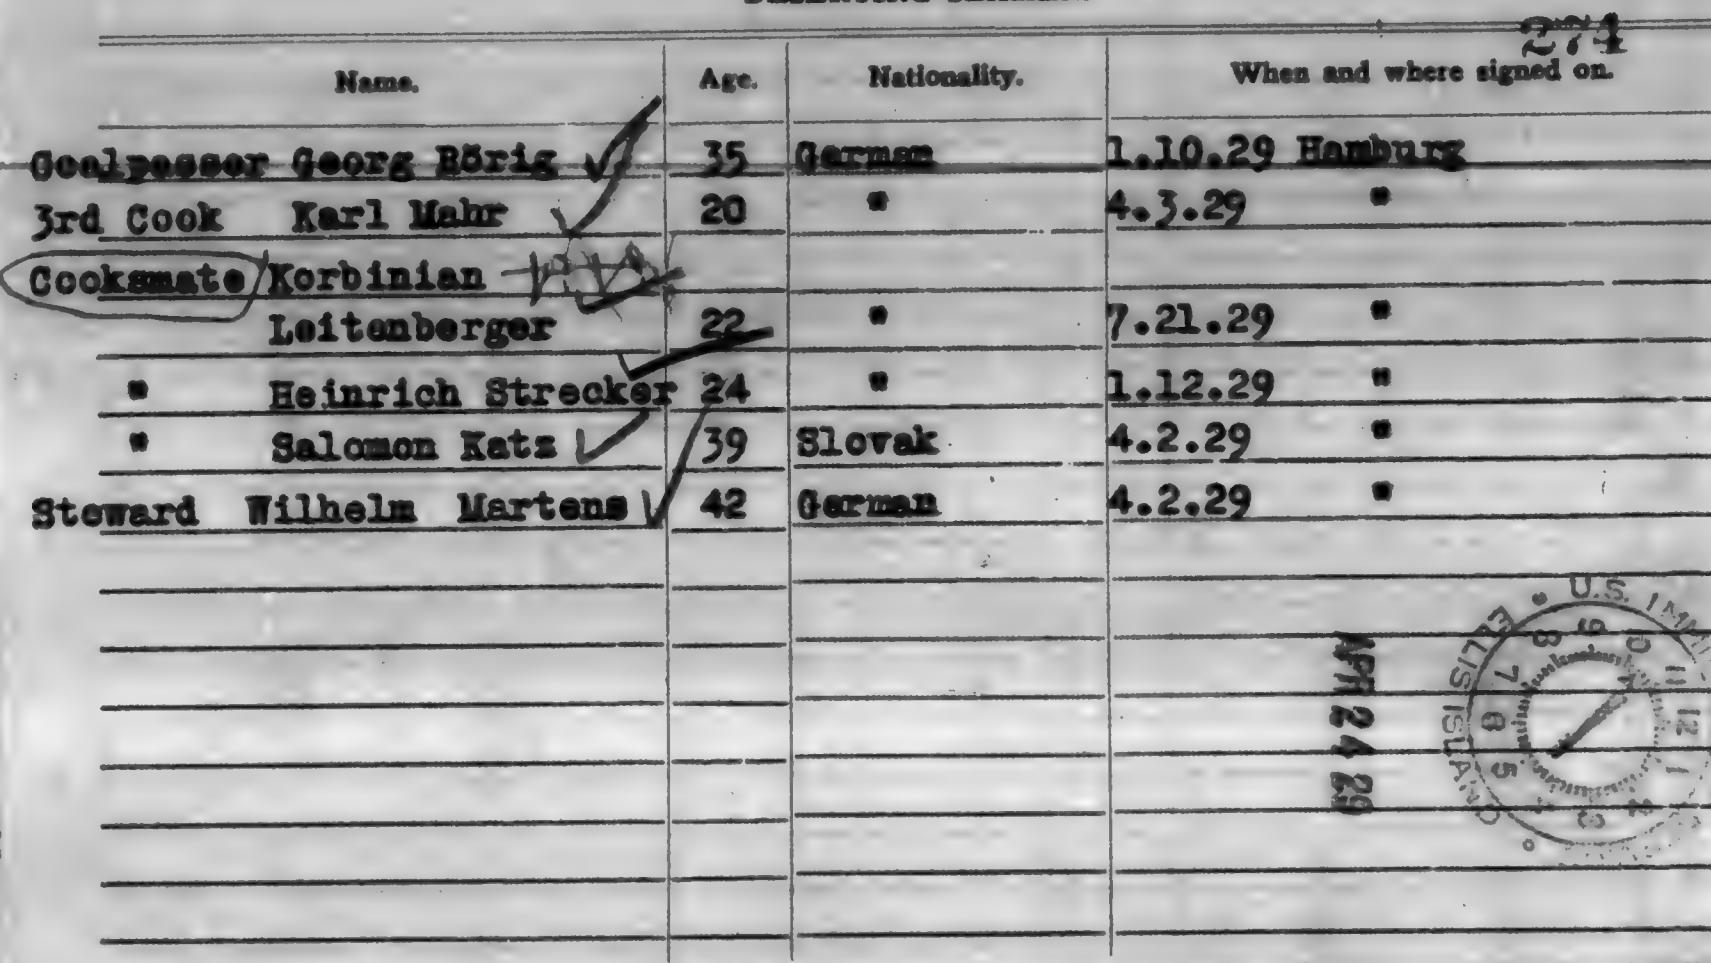 274
Name. Age. Nationality. When and where signed on.
Coalpasser Georg Börig 35 German 1.10.29 Hamburg
3rd Cook Karl Mahr 20 " 4.3.29 "
Cooksmate Korbinian
Leitenberger 22 " 7.21.29 "
" Heinrich Strecker 24 " 1.12.29 "
" Salomon Katz 39 Slovak 4.2.29 "
Steward Wilhelm Martens 42 German 4.2.29 "
U.S. IMMI
ELLIS ISLAND
APR 24 29